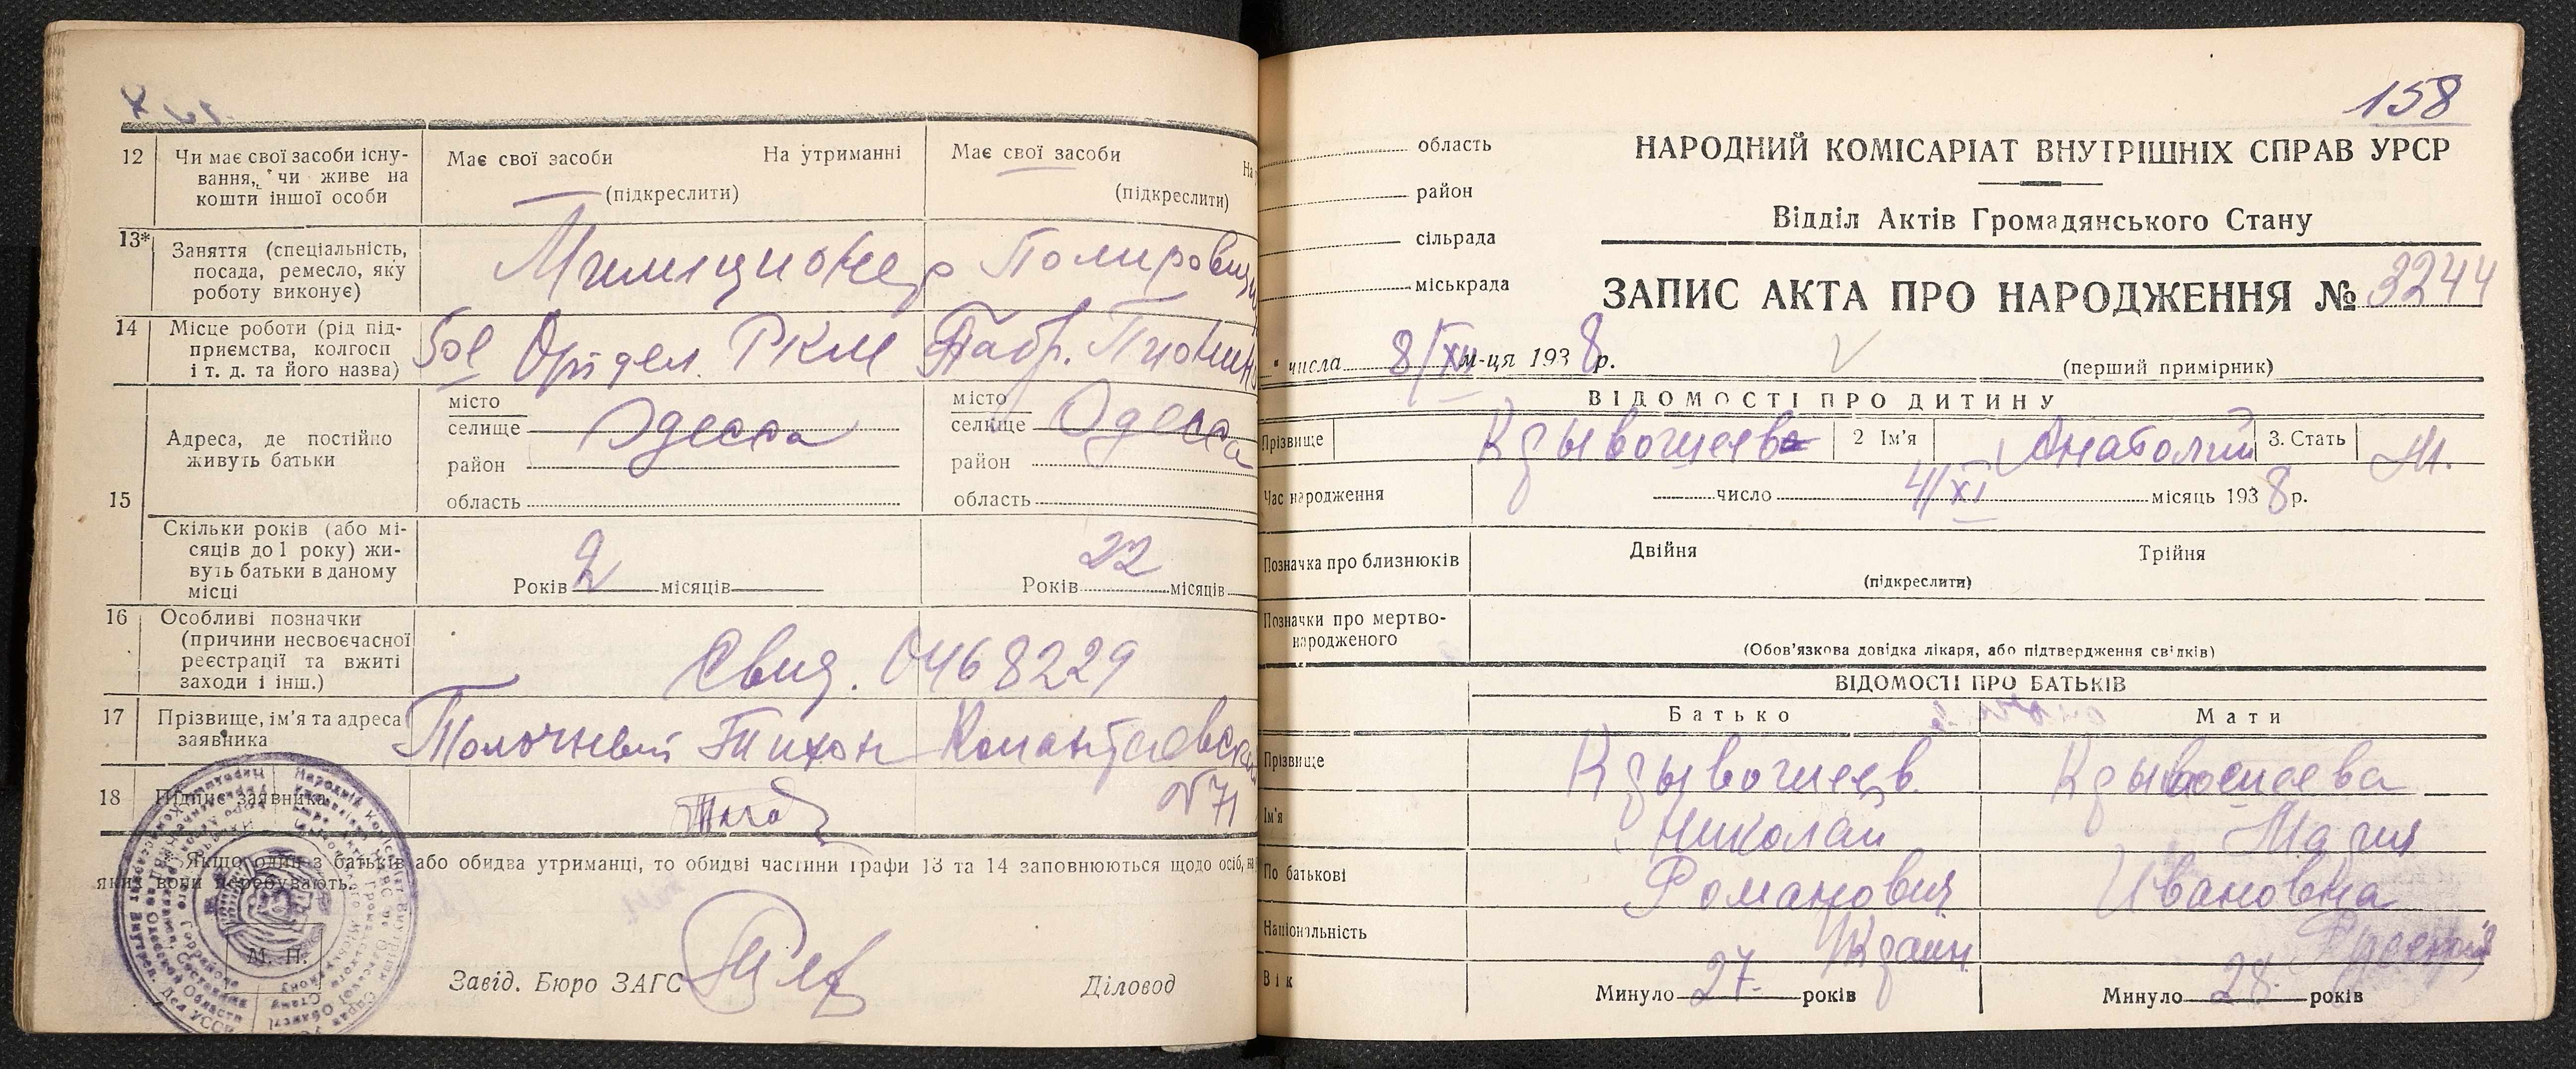 12 Чи має свої засоби існу-
вання, чи живе на
кошти іншої особи
Має свої засоби На утриманні
(підкреслити)
Має свої засоби На
(підкреслити)
13* Заняття (спеціальність,
посада, ремесло, яку
роботу виконує)
Милиционер
14 Місце роботи (рід під-
приємства, колгосп
і т. д. та його назва)
РКМ
15 Адреса, де постійно
живуть батьки
місто
селище Одесса
район
область
місто
селище Одесса
район
область
Скільки років (або мі-
сяців до 1 року) жи-
вуть батьки в даному
місці
Років 2 місяців
Років 22 місяців
16 Особливі позначки
(причини несвоєчасної
реєстрації та вжиті
заходи і інш.)
Свид. 0468229
17 Прізвище, ім'я та адреса
заявника
Тихон
18 Підпис заявника
№ 71
Якщо один з батьків або обидва утриманці, то обидві частини графи 13 та 14 заповнюються щодо осіб, на
яких вони перебувають.
М. П.
Завід. Бюро ЗАГС
Діловод
158
область
район
сільрада
міськрада
НАРОДНИЙ КОМІСАРІАТ ВНУТРІШНІХ СПРАВ УРСР
Відділ Актів Громадянського Стану
ЗАПИС АКТА ПРО НАРОДЖЕННЯ № 3244
" числа 8/XII м-ця 1938 р.
(перший примірник)
ВІДОМОСТІ ПРО ДИТИНУ
Прізвище Крывошеев 2 Ім'я Анатолий 3. Стать М.
Час народження число 4/XI місяць 1938 р.
Позначка про близнюків Двійня Трійня
(підкреслити)
Позначки про мертво-
народженого
(Обов'язкова довідка лікаря, або підтвердження свідків)
ВІДОМОСТІ ПРО БАТЬКІВ
Батько Мати
Прізвище Крывошеев. Крывошеева
Ім'я Николай Мария
По батькові Романович Ивановна
Національність Украин.
Вік Минуло 27. років Минуло 28. років